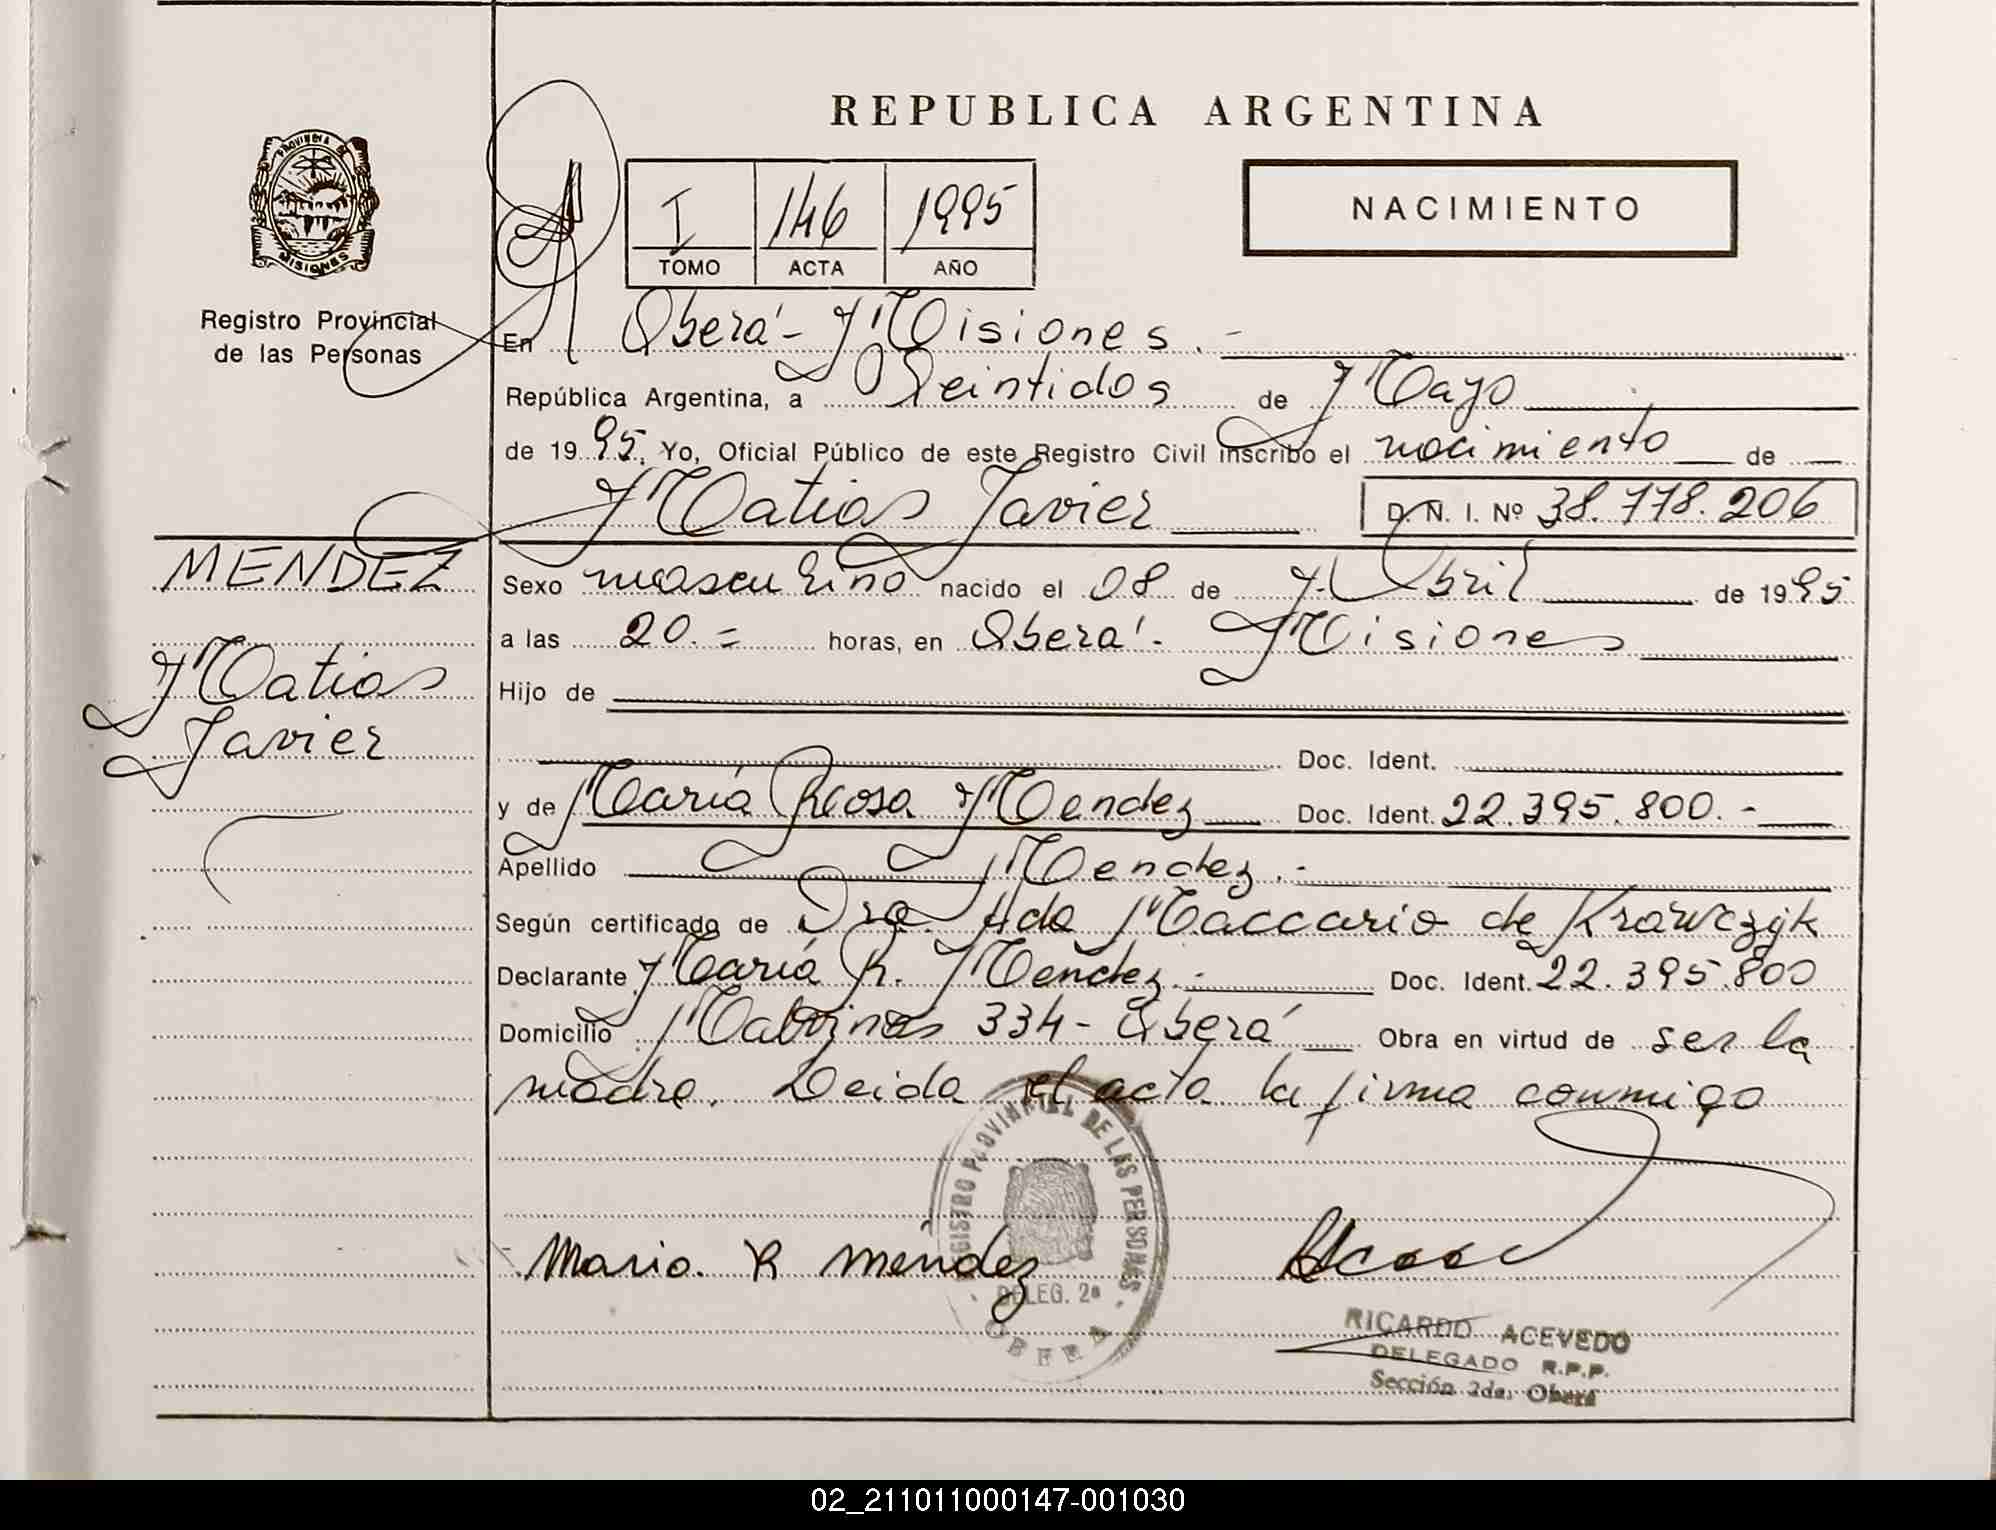 REPUBLICA ARGENTINA
PROVINCIA DE
MISIONES
Registro Provincial
de las Personas
I 146 1995
TOMO ACTA AÑO
NACIMIENTO
En Oberá - Misiones . -
República Argentina, a Veintidos de Mayo
de 1995. Yo, Oficial Público de este Registro Civil inscribo el nacimiento de
Matias Javier D. N. I. Nº 38.778.206
MENDEZ
Matias
Javier
Sexo masculino nacido el 08 de Abril de 1995
a las 20.= horas, en Oberá - Misiones
Hijo de
Doc. Ident.
y de María Rosa Mendez Doc. Ident. 22.395.800.-
Apellido Mendez . -
Según certificado de Dra. Ada Maccario de Krawczyk
Declarante María R. Mendez.- Doc. Ident. 22.395.800
Domicilio Malvinas 334 - Oberá Obra en virtud de ser la
madre. Leida el acta la firma conmigo
REGISTRO PROVINCIAL DE LAS PERSONAS
DELEG. 2ª
OBERA
Maria. R mendez
RICARDO ACEVEDO
DELEGADO R.P.P.
Sección 2da. Oberá
02_211011000147-001030